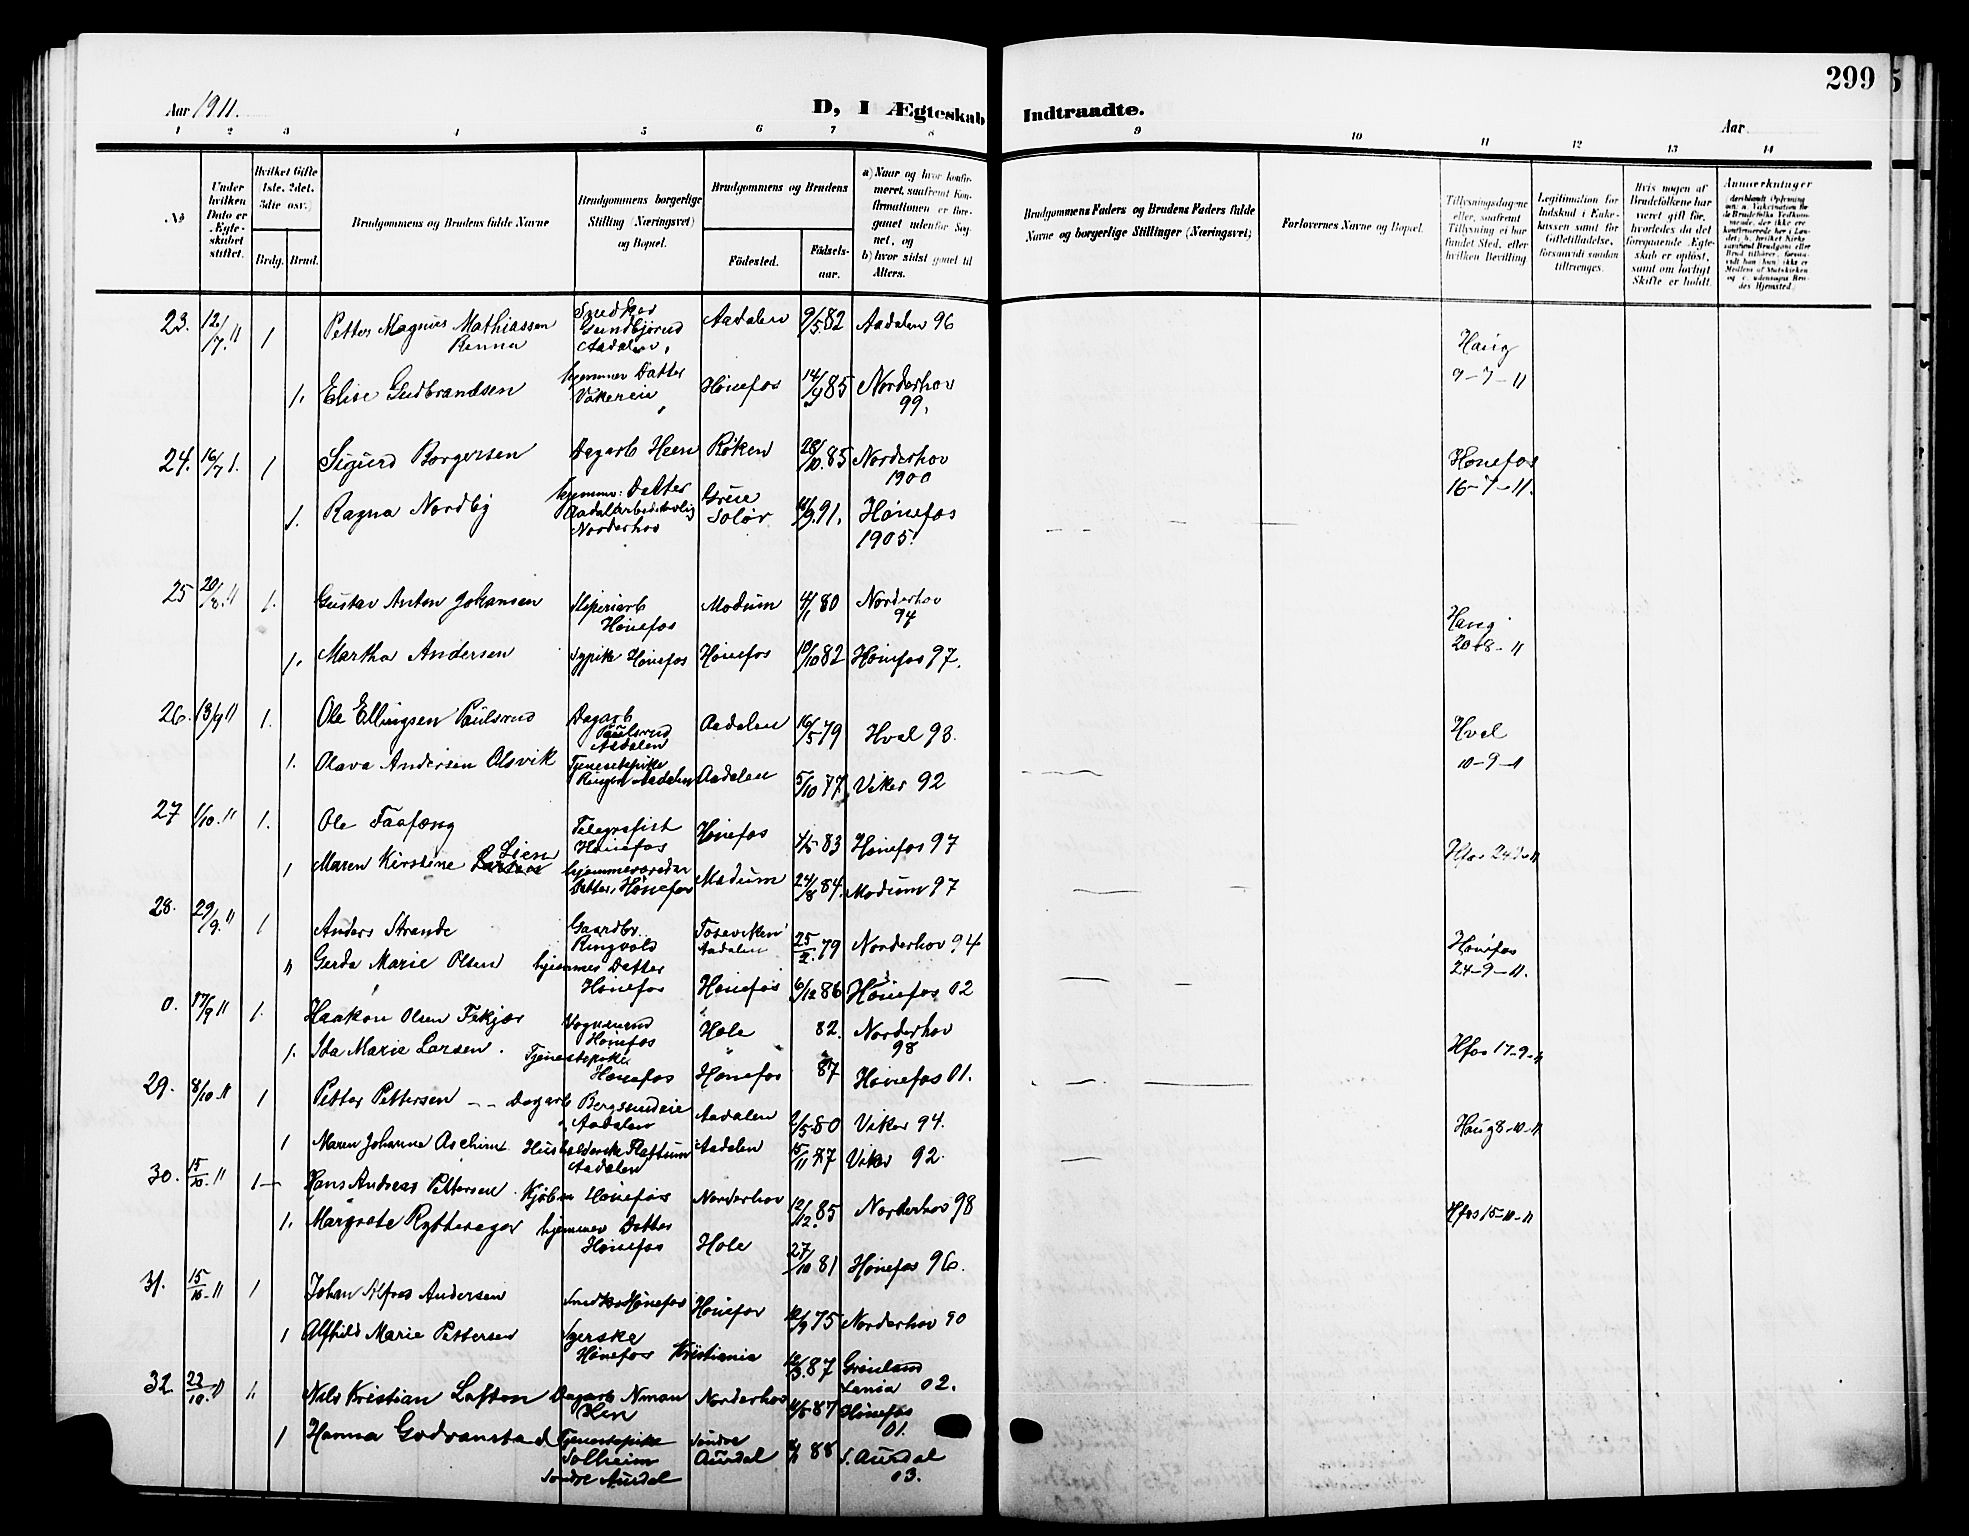 299
Aar 1911.
D, I Ægteskab Indtraadte.
Aar
1 2 3 4 5 6 7 8 9 10 11 12 13 14
No
Under hvilken Dato er Ægte-skabet stiftet.
Hvilket Gifte 1ste, 2det, 3die osv.)
Brdg. Brud.
Brudgommens og Brudens fulde Navne
Brudgommens borgerlige Stilling (Næringsvei) og Bopæl.
Brudgommens og Brudens
Födested.
Födsels-aar.
a) Naar og hvor konfir-meret, saafremt Kon-firmationen er fore-gaaet udenfor Sog-net, og
b) hvor sidst gaaet til Alters.
Brudgommens Faders og Brudens Faders fulde Navne og borgerlige Stillinger (Næringsvei)
Forlovernes Navne og Bopæl.
Tillysningsdagene eller, saafremt Tillysning ei har fundet Sted, efter hvilken Bevilling
Legitimation for Indskud i Enke-kassen samt for Giftetilladelse, forsaavidt saadan tiltrænges.
Hvis nogen af Brudefolkene har været gift för, hvorledes da det foregaaende Ægte-skab er oplöst, samt om lovligt Skifte er holdt.
Anmærkninger
23. 12/7 11 1 Petter Magnus Mathiassen Renna Snedker Gundbjørud Aadalen, Aadalen 9/5 82 Aadalen 96 Haug 9-7-11
1. Elise Gudbrandsen hjemmev Datter Vækereie Hönefos 14/4 85 Norderhov 99.
24. 16/7 1. 1 Sigurd Borgersen Dagarb Heen Röken 28/10 85 Norderhov 1900 Hönefos 16-7-11.
1. Ragna Nordby hjemmev: Datter Norderhov Grue Solör 91. Hönefos 1905.
25 20/8 11 1. Gustav Anton Johansen Sliperiarb Hönefos Modum 4/1 80 Norderhov 94 Haug 20-8-11
1. Martha Andersen Sypike Hönefos Hönefos 19/10 82 Hönefos 97.
26. 13/9 11 1. Ole Ellingsen Paulsrud Dagarb Paulsrud Aadalen Aadalen 16/5 79 Hval 93. Hval 10-9-11
1. Olava Andersen Olsvik Tjenestepike Ringerud Aadalen Aadalen 5/10 77 Viker 92
27 1/10. 11 1. Ole Faafæng Telegrafist Hönefos Hönefos 4/5 83 Hönefos 97 Hfos 24-9-11
1 Maren Kirstine Lien hjemmeværende Datter, Hönefos Modum 24/8 84. Modum 97
28. 29/9. 11 1 Anders Strande Gaardbr. Ringvold Aadalen 25/2 79 Norderhov 94 Hönefos 24-9-11.
11 Gerda Marie Olsen hjemmev Datter Hönefos Hönefos 6/12 86 Hönefos 02
0. 17/9 11 1. Haakon Olsen Fekjær Vognmand Hönefos Hole 82. Norderhov 98 Hfos 17-9-11
1. Ida Marie Larsen. Tjenestepike Hönefos Hönefos 87 Hönefos 01.
29. 8/10 11 1 Petter Pettersen -- Dagarb Bergsundeie Aadalen Aadalen 2/5 80 Viker 94. Haug 8-10-11
1 Maren Johanne Ascheim Husholderske Aadalen Aadalen 15/11 77 Viker 92.
30. 15/10. 11 1 Hans Andreas Pettersen Kjöbm Hönefos Norderhov 12/12. 85 Norderhov 98 Hfos 15-10-11
1. Margrete Rytterager hjemmev Datter Hönefos Hole 27/10 81 Hönefos 96.
31. 15/10 11 1 Johan Alfred Andersen Snedker Hönefos Hönefos 12/9 75 Norderhov 90
1 Alfhild Marie Pettersen Syerske Hönefos Kristiania 12/3. 87 Grönland Xania 02.
32 22/10. 11 11 Nils Kristian Lafton Dagarb Nman Hen Norderhov 4/5 87 Hönefos 01.
1 Hanna Godvanstad Tjenestepike Solheim Söndre Aurdal Söndre Aurdal 88 S. Aurdal 03.